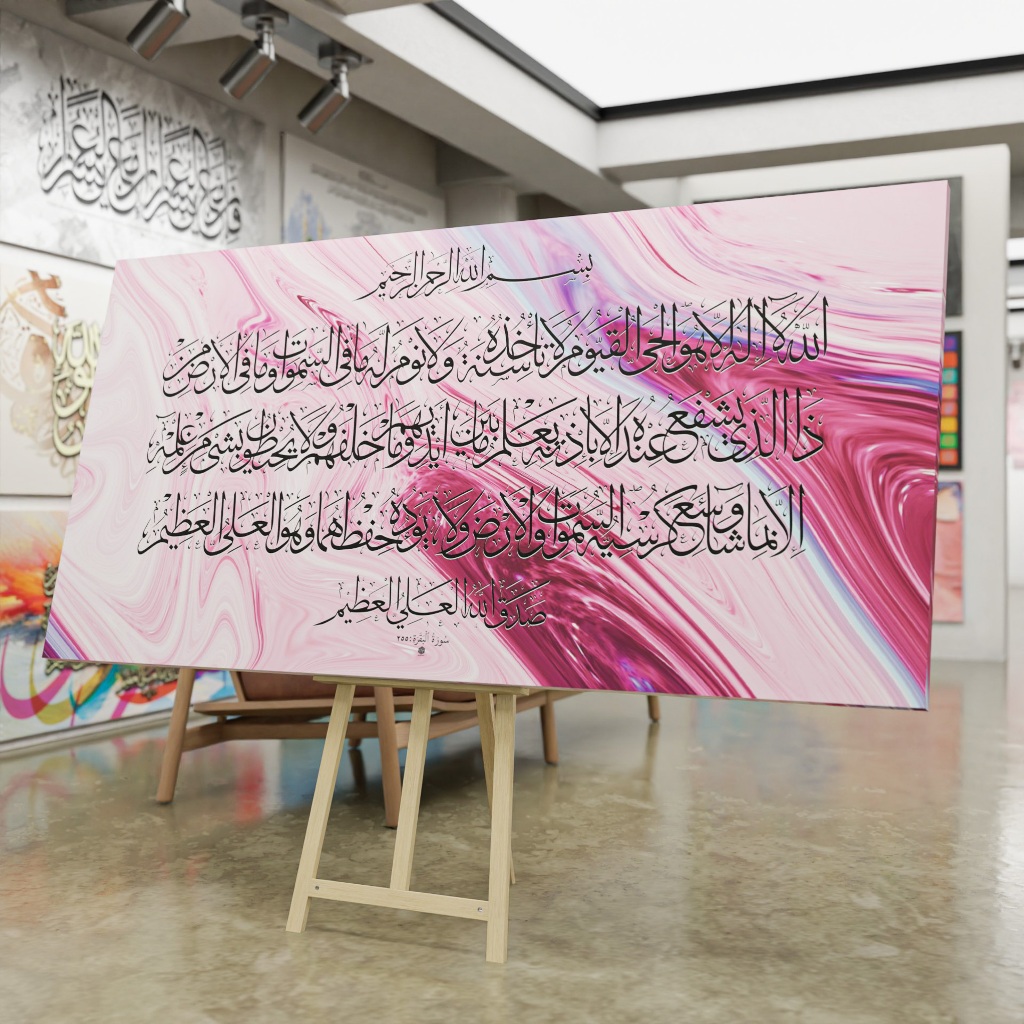 فان مع العسر يسرا ان مع العسر يسرا
بسم الله الرحمن الرحيم
الله لا اله الا هو الحي القيوم لا تأخذه سنة ولا نوم له ما في السموات وما في الارض من
ذا الذي يشفع عنده الا باذنه يعلم ما بين ايديهم وما خلفهم ولا يحيطون بشيء من علمه
الا بما شاء وسع كرسيه السموات والارض ولا يؤده حفظهما وهو العلي العظيم
صدق الله العلي العظيم
سورة البقرة: ٢٥٥